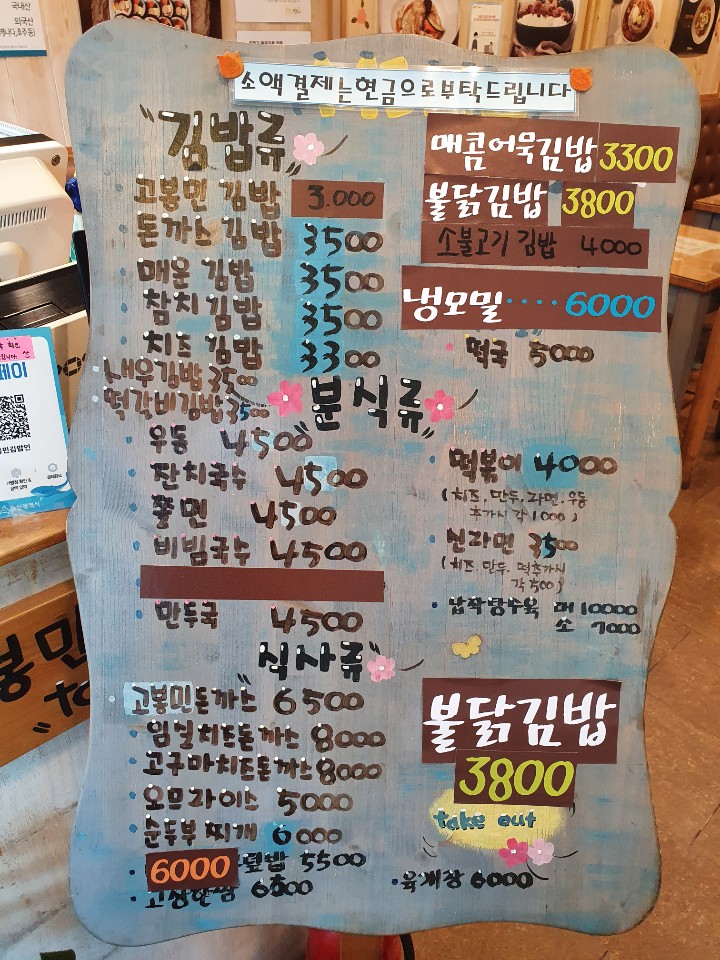 국내산
외국산
소액결제는현금으로부탁드립니다
"김밥류"
고봉민 김밥 3.000
돈까스 김밥 3500
매운 김밥 3500
참치 김밥 3500
치즈 김밥 3300
새우김밥 3500
떡갈비김밥 3500
매콤어묵김밥 3300
불닭김밥 3800
소불고기 김밥 4000
냉모밀····6000
떡국 5000
"분식류"
우동 4500
잔치국수 4500
쫄면 4500
비빔국수 4500
만두국 4500
떡볶이 4000
(치즈, 만두, 라면, 우동
추가시 각 1000)
신라면 3500
(치즈, 만두, 떡추가시
각 500)
납작탕수육 대 10000
소 7000
"식사류"
고봉민돈까스 6500
임실치즈돈까스 8000
고구마치즈돈까스 8000
오므라이스 5000
순두부찌개 6000
6000 덮밥 5500
6500
불닭김밥
3800
take out
육개장 6000
페이
고봉민
"to